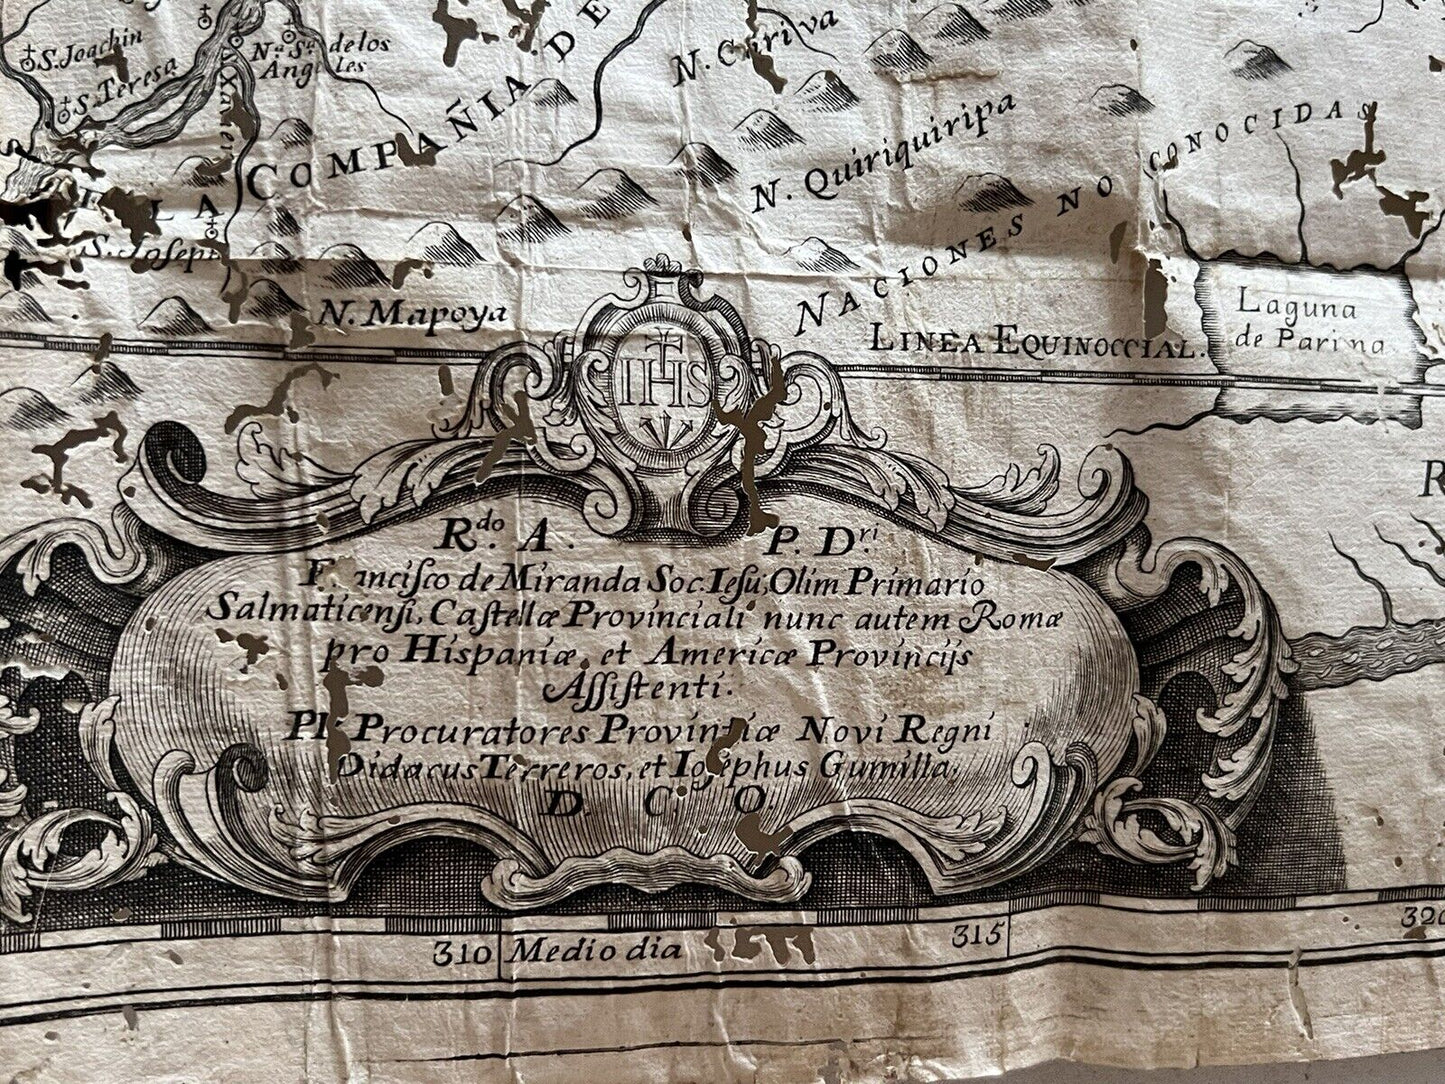 S. Joachin
S. Teresa
Nª Sª de los
Angeles
S. Xavier
COMPAÑIA DE
LA
S. Joseph
N. Cariva
N. Quiriquiripa
NACIONES NO CONOCIDAS
N. Mapoya
LINEA EQUINOCCIAL.
Laguna
de Parima
IHS
R.do A. P. D.ri
Francisco de Miranda Soc. Iesu, Olim Primario
Salmaticensi, Castellæ Provinciali nunc autem Romæ
pro Hispaniæ, et Americæ Provincijs
Assistenti.
PP. Procuratores Provintiæ Novi Regni
Didacus Terreros, et Iosephus Gumilla,
D. C. O.
R
310 Medio dia 315 320